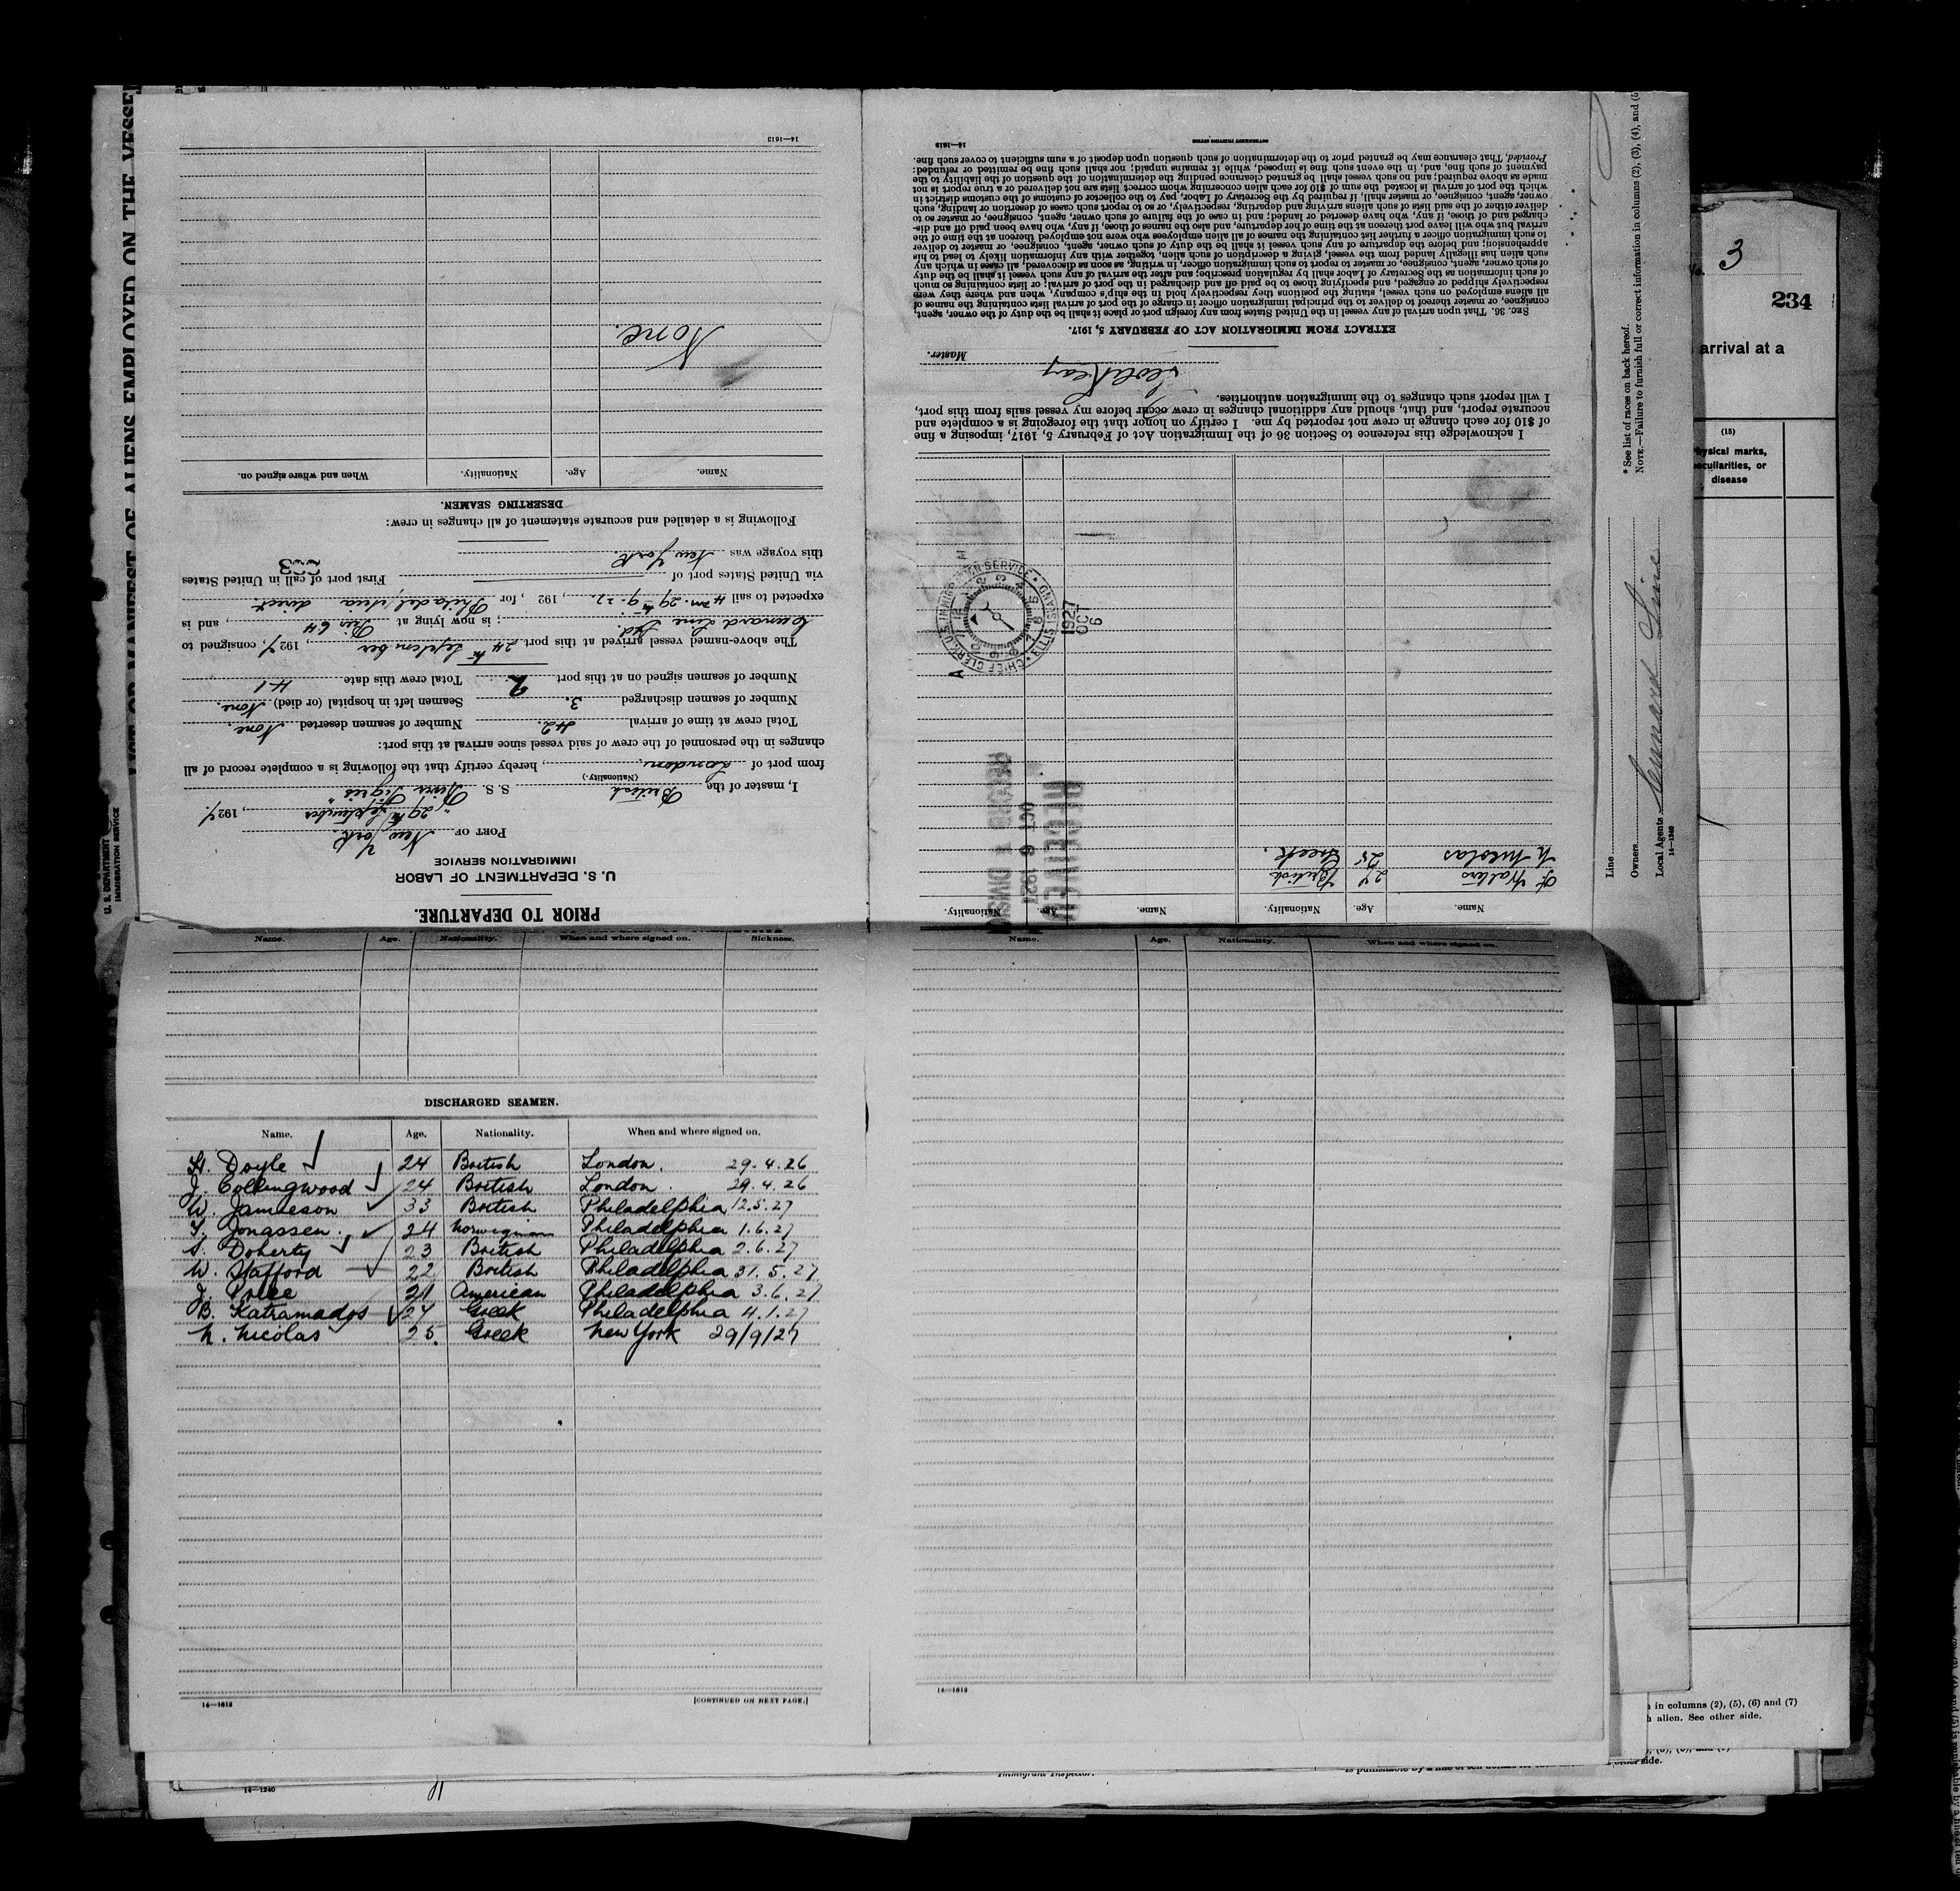 PRIOR TO DEPARTURE.
U. S. DEPARTMENT OF LABOR
IMMIGRATION SERVICE
PORT OF New York
29th September, 1927.
I, master of the British S. S. River Tigris
(Nationality.)
from port of London, hereby certify that the following is a complete record of all
changes in the personnel of the crew of said vessel since arrival at this port:
Total crew at time of arrival 42. Number of seamen deserted None.
Number of seamen discharged 3. Seamen left in hospital (or died) None.
Number of seamen signed on at this port 2 Total crew this date 41
The above-named vessel arrived at this port 24th September, 1927, consigned to
Cunard Line Ltd. ; is now lying at Pier 64, and is
expected to sail 4 am. 29th 9. 27, 192 , for Philadelphia direct.
via United States port of First port of call in United States
this voyage was New York.
Following is a detailed and accurate statement of all changes in crew:
DESERTING SEAMEN.
Name. Age. Nationality. When and where signed on.
None.
14—1613
Name. Age. Nationality. Name. Age. Nationality.
F Walters 27 British
N Nicolas 25 Greek.
RECEIVED
OCT 6 1927
I acknowledge this reference to Section 36 of the Immigration Act of February 5, 1917, imposing a fine
of $10 for each change in crew not reported by me. I certify on honor that the foregoing is a complete and
accurate report, and that, should any additional changes in crew occur before my vessel sails from this port,
I will report such changes to the immigration authorities.
Master.
EXTRACT FROM IMMIGRATION ACT OF FEBRUARY 5, 1917.
SEC. 36. That upon arrival of any vessel in the United States from any foreign port or place it shall be the duty of the owner, agent,
consignee, or master thereof to deliver to the principal immigration officer in charge of the port of arrival lists containing the names of
all aliens employed on such vessel, stating the positions they respectively hold in the ship's company, when and where they were
respectively shipped or engaged, and specifying those to be paid off and discharged in the port of arrival; or lists containing so much
of such information as the Secretary of Labor shall by regulation prescribe; and after the arrival of any such vessel it shall be the duty
of such owner, agent, consignee, or master to report to such immigration officer, in writing, as soon as discovered, all cases in which any
such alien has illegally landed from the vessel, giving a description of such alien, together with any information likely to lead to his
apprehension; and before the departure of any such vessel it shall be the duty of such owner, agent, consignee, or master to deliver
to such immigration officer a further list containing the names of all alien employees who were not employed thereon at the time of the
arrival but who will leave port thereon at the time of her departure, and also the names of those, if any, who have been paid off and dis-
charged and of those, if any, who have deserted or landed; and in case of the failure of such owner, agent, consignee, or master so to
deliver either of the said lists of such aliens arriving and departing, respectively, or so to report such cases of desertion or landing, such
owner, agent, consignee, or master, shall, if required by the Secretary of Labor, pay to the collector of customs of the customs district in
which the port of arrival is located the sum of $10 for each alien concerning whom correct lists are not delivered or a true report is not
made as above required; and no such vessel shall be granted clearance pending the determination of the question of the liability to the
payment of such fine, and, in the event such fine is imposed, while it remains unpaid; nor shall such fine be remitted or refunded:
Provided, That clearance may be granted prior to the determination of such question upon deposit of a sum sufficient to cover such fine.
14—1613
GOVERNMENT PRINTING OFFICE
1927
OCT
6
LIST OR MANIFEST OF ALIENS EMPLOYED ON THE VESSEL
U. S. DEPARTMENT
IMMIGRATION SERVICE
Line
Owners
Local Agents Cunard Line
14—1240
* See list of races on back hereof.
NOTE.—Failure to furnish full or correct information in columns (2), (3), (4), and (5
No. 3
234
arrival at a
(15)
Physical marks,
peculiarities, or
disease
Name. Age. Nationality. When and where signed on. Sickness.
Name. Age. Nationality. When and where signed on.
DISCHARGED SEAMEN.
Name. Age. Nationality. When and where signed on.
H. Doyle 24 British London. 29.4.26
J. Collingwood 24 British London. 29.4.26
W. Jamieson 33 British Philadelphia 12.5.27
T. Jonassen. 24 Norwegian Philadelphia 1.6.27
S. Doherty 23 British Philadelphia 2.6.27
W. Stafford 22 British Philadelphia 31.5.27
J. Price 21 American Philadelphia 3.6.27
B. Katramados 24 Greek Philadelphia 4.1.27
N. Nicolas 25 Greek New York 29/9/27
14—1613 [CONTINUED ON NEXT PAGE.]
14—1613
in columns (2), (5), (6) and (7)
alien. See other side.
other side.
14—1240
Immigrant Inspector.